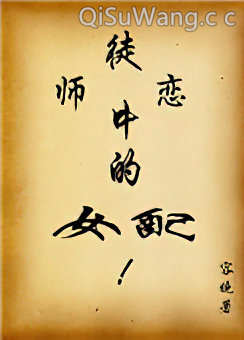 QiSuWang.c c
师徒恋
中
的
女配
!